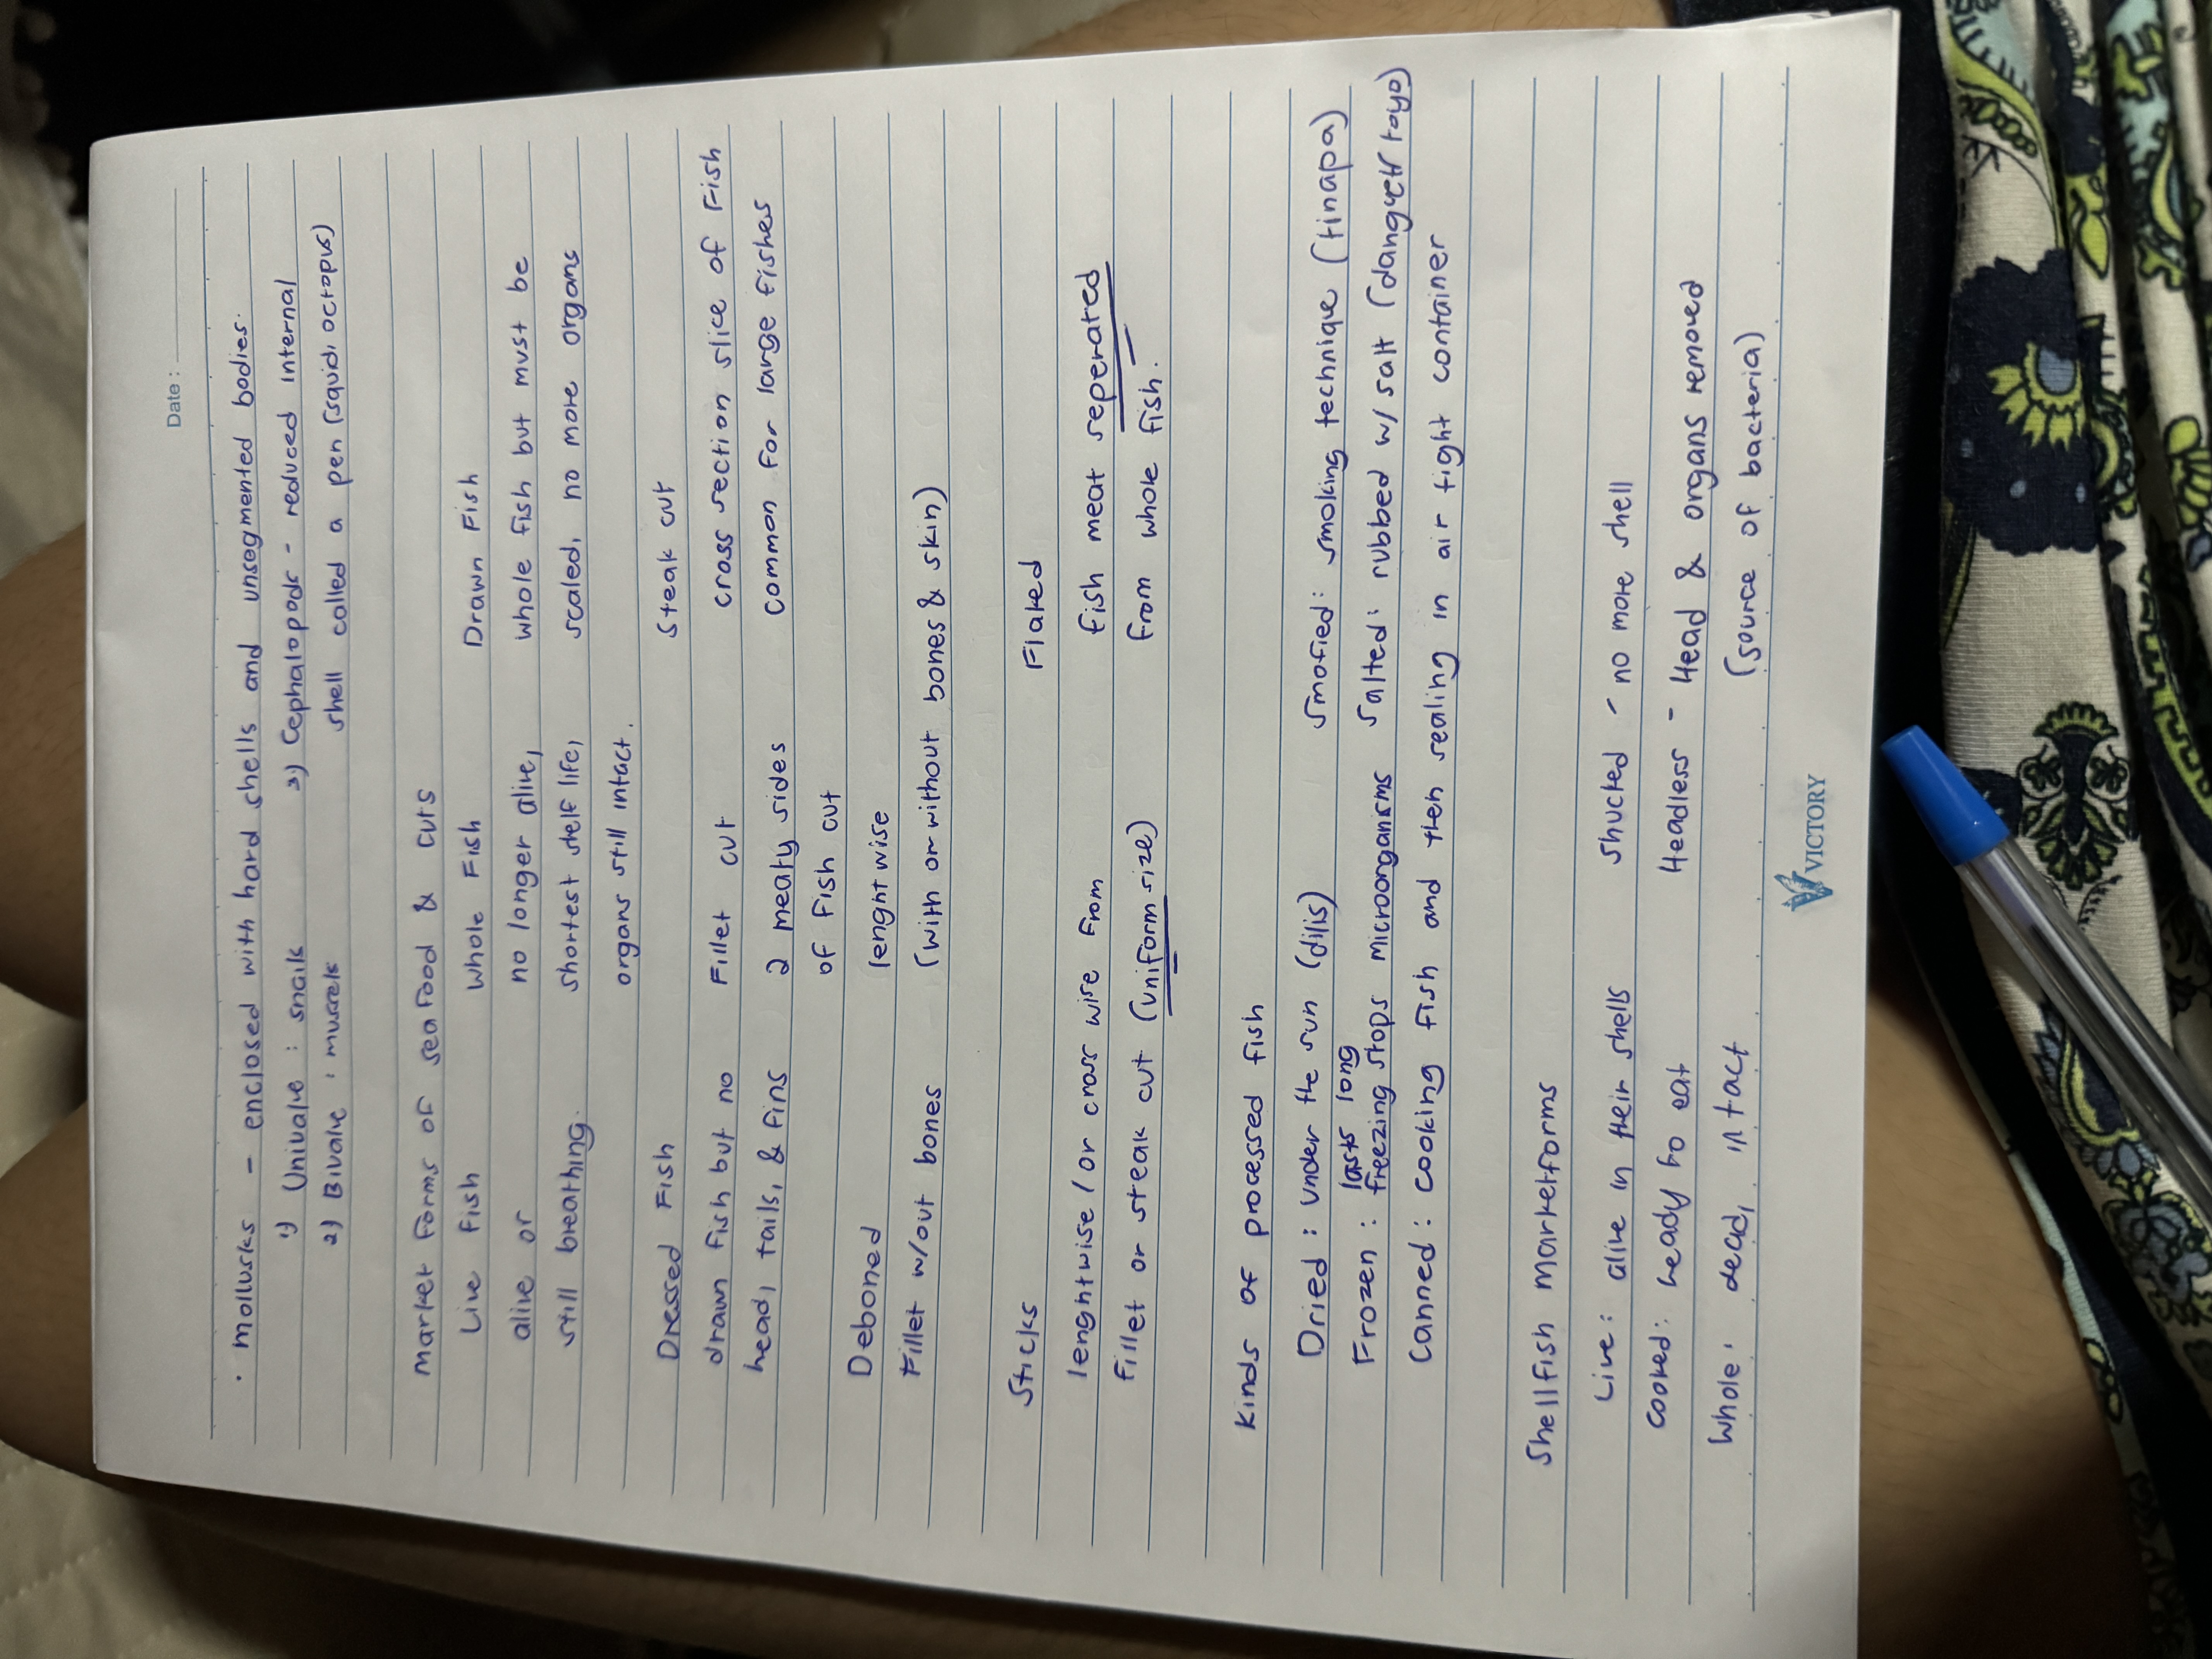 Date :
• Mollusks - enclosed with hard shells and unsegmented bodies.
1) Univalve : snails
2) Bivalve : mussels
3) Cephalopods - reduced internal
shell called a pen (squid, octopus)
Market Forms of seafood & cuts
Live Fish
alive or
still breathing.
Whole Fish
no longer alive,
shortest shelf life,
organs still intact.
Drawn Fish
whole fish but must be
scaled, no more organs
Dressed Fish
drawn fish but no
head, tails, & fins
Fillet cut
2 meaty sides
of fish cut
lenght wise
(with or without bones & skin)
Steak cut
cross section slice of Fish
common for large fishes
Deboned
Fillet w/out bones
Sticks
lenghtwise / or cross wise from
fillet or steak cut (uniform size)
Flaked
fish meat seperated
from whole fish.
Kinds of processed fish
Dried : under the sun (dilis)
Frozen : lasts long
freezing stops microorganisms
Canned : cooking fish and then sealing in air tight container
Smofied : smoking technique (tinapa)
Salted : rubbed w/ salt (toyo)
Shellfish Marketforms
Live : alive in their shells
Cooked : ready to eat
Whole : dead, intact
Shucked - no more shell
Headless - Head & organs removed
(source of bacteria)
VICTORY